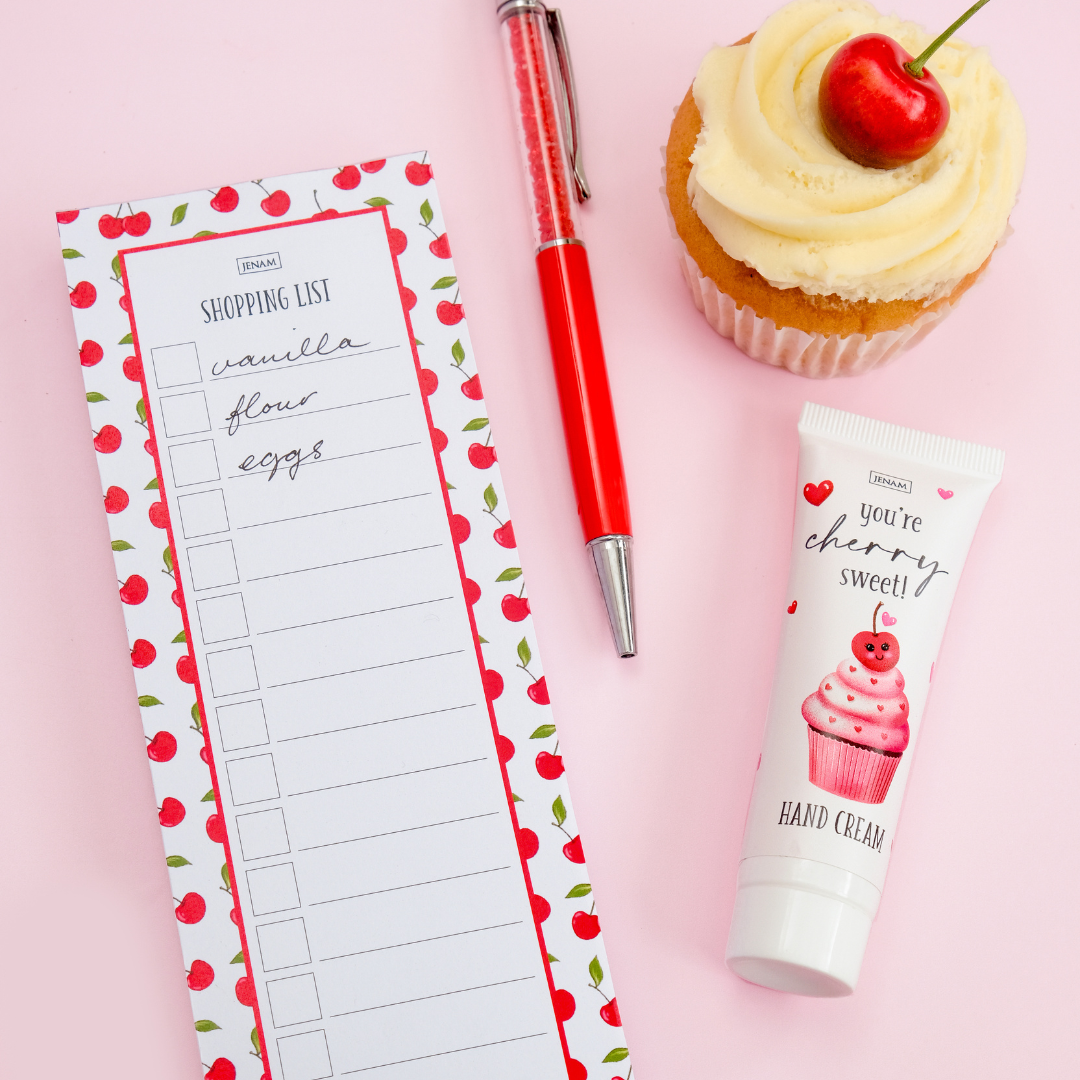 JENAM
SHOPPING LIST
vanilla
flour
eggs
JENAM
you're
cherry
sweet!
HAND CREAM